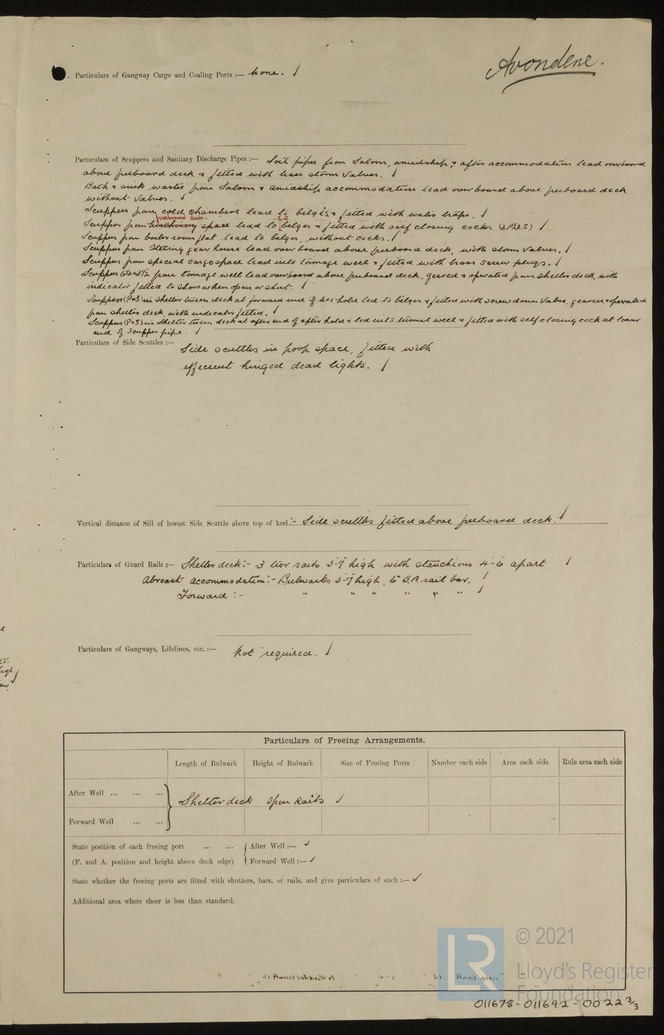 Avondene.
Particulars of Gangway Cargo and Coaling Ports :— None. /
Particulars of Scuppers and Sanitary Discharge Pipes :— Soil pipes from Saloon, amidship, & after accommodation lead overboard
above freeboard deck & fitted with brass storm valves. /
Bath & sink wastes from Saloon & amidship accommodation lead overboard above freeboard deck
without valves. /
Scuppers from cold chambers lead to bilges & fitted with water traps. /
Scupper from space lead to bilges & fitted with self closing cocks (P&S) /
Scupper from boiler room flat lead to bilges, without cocks. /
Scupper from Steering gear house lead overboard above freeboard deck, with storm valves. /
Scupper from special cargo space lead into tonnage well & fitted with brass screw plugs. /
Scupper from tonnage well lead overboard above freeboard deck, geared & operated from shelter deck, with
indicator fitted to show when open or shut. /
Scuppers (P&S) in Shelter tween deck at forward end of hold led to bilges & fitted with screw down valve, geared & operated
from shelter deck with indicator fitted. /
Scuppers (P&S) in Shelter tween deck at after end of after hold & led into tunnel well & fitted with self closing cock at lower
end of scupper pipe. /
Particulars of Side Scuttles :— Side scuttles in poop space, fitted with
efficient hinged dead lights. /
Vertical distance of Sill of lowest Side Scuttle above top of keel :- Side scuttles fitted above freeboard deck. /
Particulars of Guard Rails :— Shelter deck :- 3 tier rails 3-7 high with stanchions 4-6 apart /
Abreast accommodation :- Bulwarks 3-7 high, to rail bar. /
Forward :- " " " " " " /
Particulars of Gangways, Lifelines, etc. :— Not required. /
Particulars of Freeing Arrangements.
Length of Bulwark Height of Bulwark Size of Freeing Ports Number each side Area each side Rule area each side
After Well ... ... ...
Shelter deck open rails ✓
Forward Well ... ...
State position of each freeing port ... ... { After Well :— ✓
(F. and A. position and height above deck edge) { Forward Well :— ✓
State whether the freeing ports are fitted with shutters, bars, or rails, and give particulars of such :— ✓
Additional area where sheer is less than standard.
LR
© 2021
Lloyd's Register
Foundation
011678-011692-0022 3/3